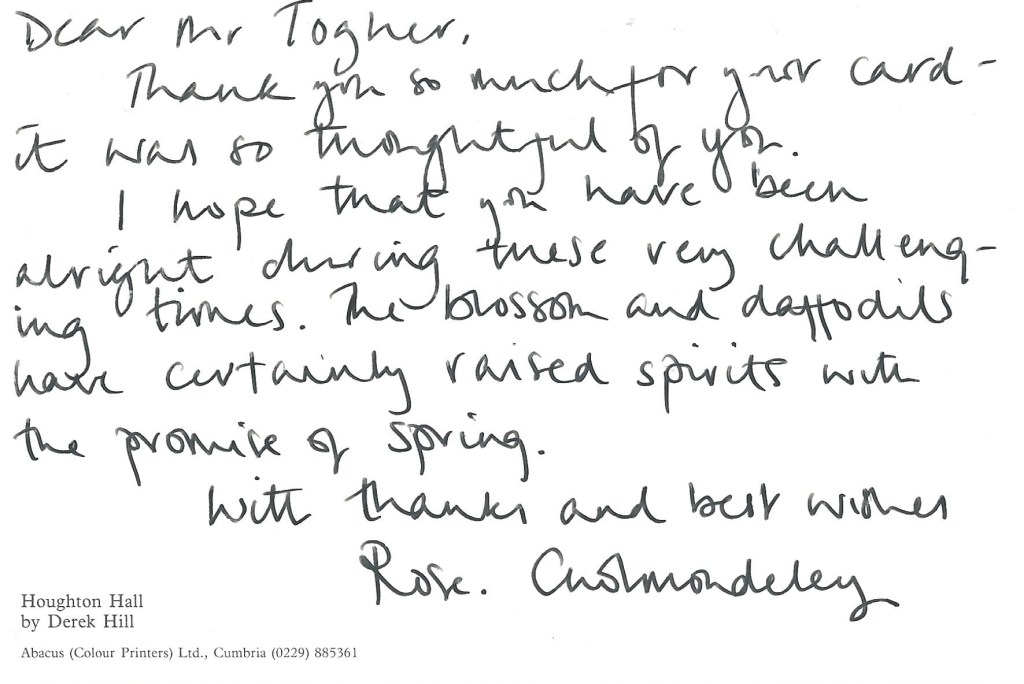 Dear Mr Togher,
Thank you so much for your card -
it was so thoughtful of you.
I hope that you have been
alright during these very challeng-
ing times. The blossom and daffodils
have certainly raised spirits with
the promise of spring.
With thanks and best wishes
Rose. Cholmondeley
Houghton Hall
by Derek Hill
Abacus (Colour Printers) Ltd., Cumbria (0229) 885361